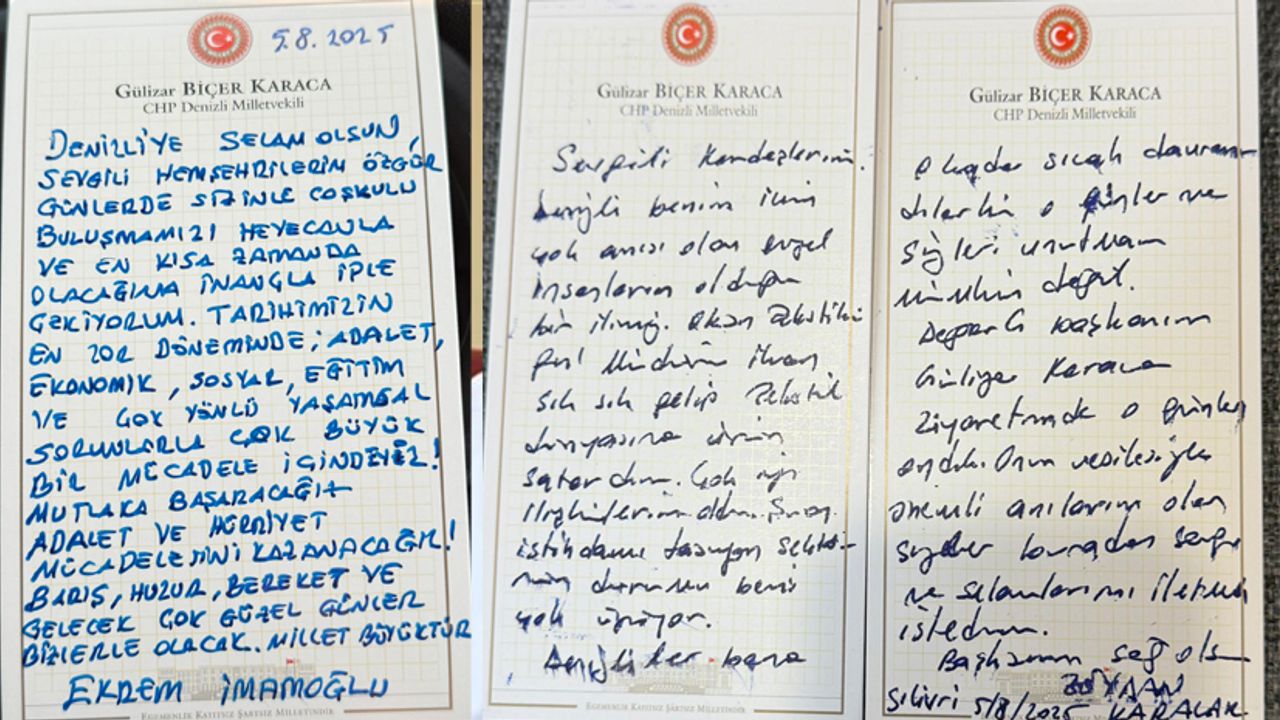 5.8.2025
Gülizar BİÇER KARACA
CHP Denizli Milletvekili
DENİZLİ'YE SELAM OLSUN,
SEVGİLİ HEMŞEHRİLERİM ÖZGÜR
GÜNLERDE SİZİNLE COŞKULU
BULUŞMAMIZI HEYECANLA
VE EN KISA ZAMANDA
OLACAĞINA İNANÇLA İPLE
ÇEKİYORUM. TARİHİMİZİN
EN ZOR DÖNEMİNDE; ADALET,
EKONOMİK, SOSYAL, EĞİTİM
VE ÇOK YÖNLÜ YAŞAMSAL
SORUNLARLA ÇOK BÜYÜK
BİR MÜCADELE İÇİNDEYİZ!
MUTLAKA BAŞARACAĞIZ
ADALET VE HÜRRİYET
MÜCADELESİNİ KAZANACAĞIZ!
BARIŞ, HUZUR, BEREKET VE
GELECEK ÇOK GÜZEL GÜNLER
BİZLERLE OLACAK. MİLLET BÜYÜKTÜR
EKREM İMAMOĞLU
Gülizar BİÇER KARACA
CHP Denizli Milletvekili
Sevgili Kardeşlerim.
Denizli benim için
çok anısı olan güzel
insanların olduğu
bir ilimiz. Tekstilin
sık sık gelip Tekstil
dünyasına ürün
satardım. Çok iyi
ilişkilerim oldu.
istihdamı taşıyan sektör-
nün durumu beni
çok üzüyor.
Denizliler bana
EGEMENLİK KAYITSIZ ŞARTSIZ MİLLETİNDİR
Gülizar BİÇER KARACA
CHP Denizli Milletvekili
o kadar sıcak davran-
dılar ki o günler ve
sizleri unutmam
mümkün değil.
Değerli başkanım
Gülizar Karaca
ziyaretimde o günleri
andık. Onun vesilesiyle
önemli anılarım olan
sizlere buradan sevgi
ve selamlarımı iletmek
istedim.
Başkanım sağ olsun
Silivri 5/8/2025 KARALAR